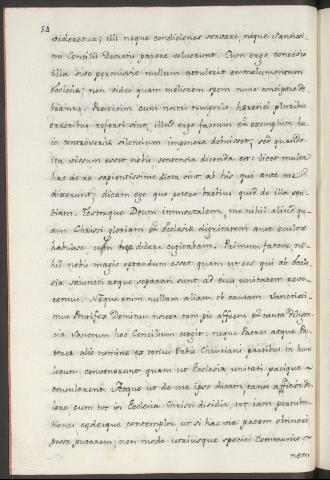 52
videretur; illi neque condiciones servare neque Sanctissi-
mi Concilii Decretis parere voluerunt. Cum ergo concessio
illa sive permissio nullum attulerit emolumentum
Ecclesiae; non video quam meliorem spem nunc concipere de-
beamus. Praesertim cum nostri temporis heretici pluribus
erroribus referti sint, illud ergo factum et exemplum hu-
ic controversiae silentium imponere debuisset, sed quando
ita visum esset nobis sententia dicenda est: licet multa
hac de re sapientissime dicta sint ab his qui ante me
dixerunt; dicam ego quo potero brevius quid de illa sen-
tiam. Testorque Deum immortalem, me nihil aliud qu-
am Christi gloriam et Ecclesiae dignitatem ante oculos
habuisse cum dicere cogitabam. Primum fateor, ni-
hil nobis magis optandum esset quam ut eos qui ab Eccle-
sia seiuncti atque separati sunt ad eius unitatem revo-
cemus. Neque enim nullam aliam ob causam Sanctissi-
mus Pontifex Dominus noster tam pio affectu et tanta diligen-
tia Sanctum hoc Concilium coegit: neque Patres atque Pa-
tres alio nomine ex totius Orbis Christiani partibus in hunc
locum convenerunt quam ut Ecclesiae unitati pacique
consulerent. Atque ut de me ipso dicam, tanto afficior do-
lore cum tot in Ecclesia Christi dissidia, tot iam pertuba-
tiones cladesque contemplor, ut si hac via pacem obtineri
posse putarem; non modo utriusque speciei Communio-
nem